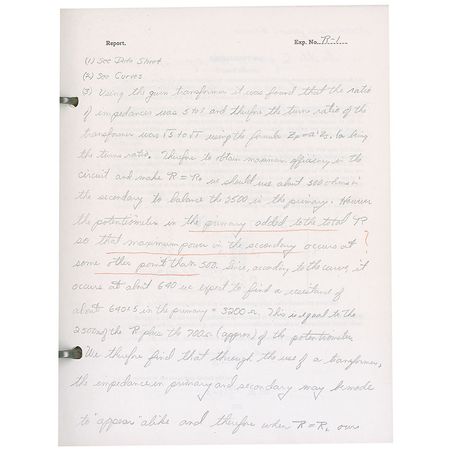 Report. Exp. No. R-1
(1) See Data Sheet
(2) See Curves
(3) Using the given transformer it was found that the ratio
of impedances was 5 to 1 and therefore the turns ratio of the
transformer was √5 to √1 using the formula Zp = a²Zs. (a being
the turns ratio). Therefore to obtain maximum efficiency in the
circuit and make R = R₀ we should use about 500 ohms in
the secondary to balance the 2500 in the primary. However
the potentiometer in the primary added to the total R
so that maximum power in the secondary occurs at ?
some other point than 500. Since, according to the curves, it
occurs at about 640 we expect to find a resistance of
about 640×5 in the primary = 3200 Ω. This is equal to the
2500 of the R plus the 700 Ω (approx) of the potentiometer.
We therefore find that through the use of a transformer,
the impedances in primary and secondary may be made
to "appear" alike and therefore when R = R, our